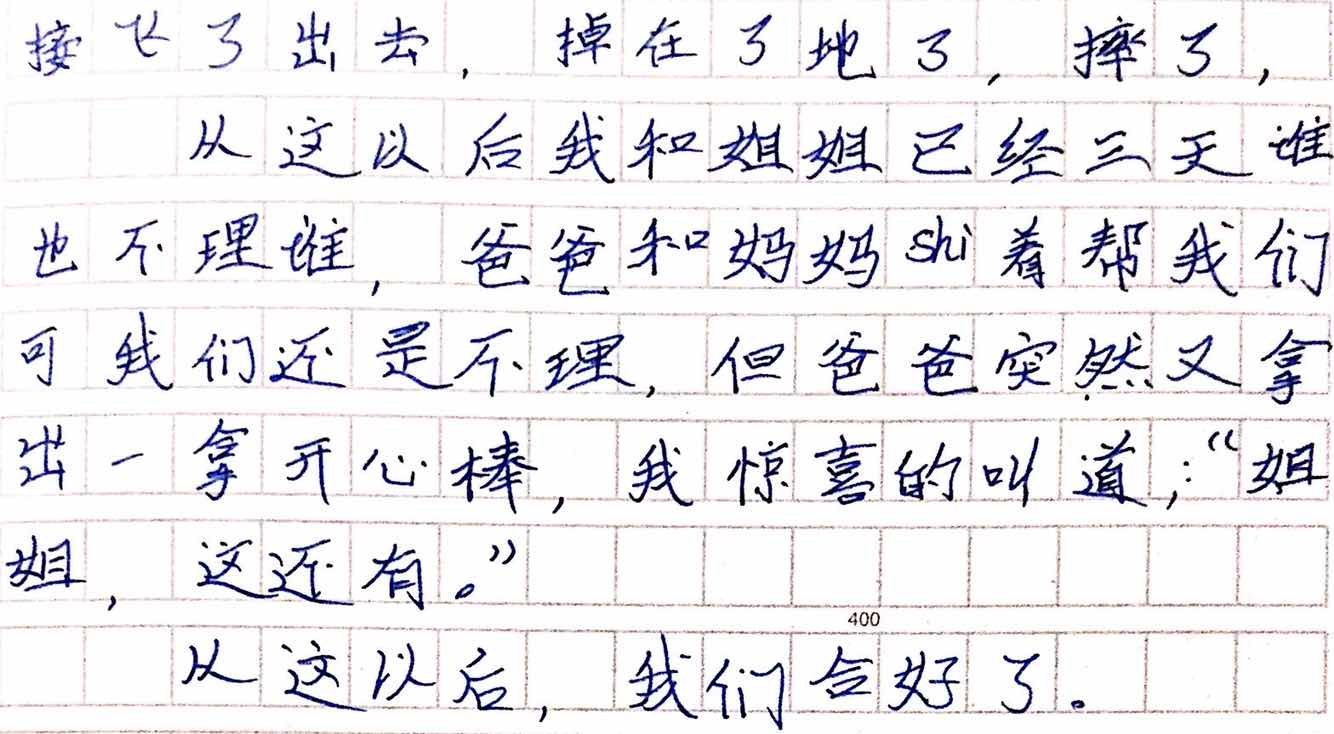 接飞了出去，掉在了地了，摔了，
从这以后我和姐姐已经三天谁
也不理谁，爸爸和妈妈shi着帮我们
可我们还是不理，但爸爸突然又拿
出一拿开心棒，我惊喜的叫道；“姐
姐，这还有。”
400
从这以后，我们合好了。